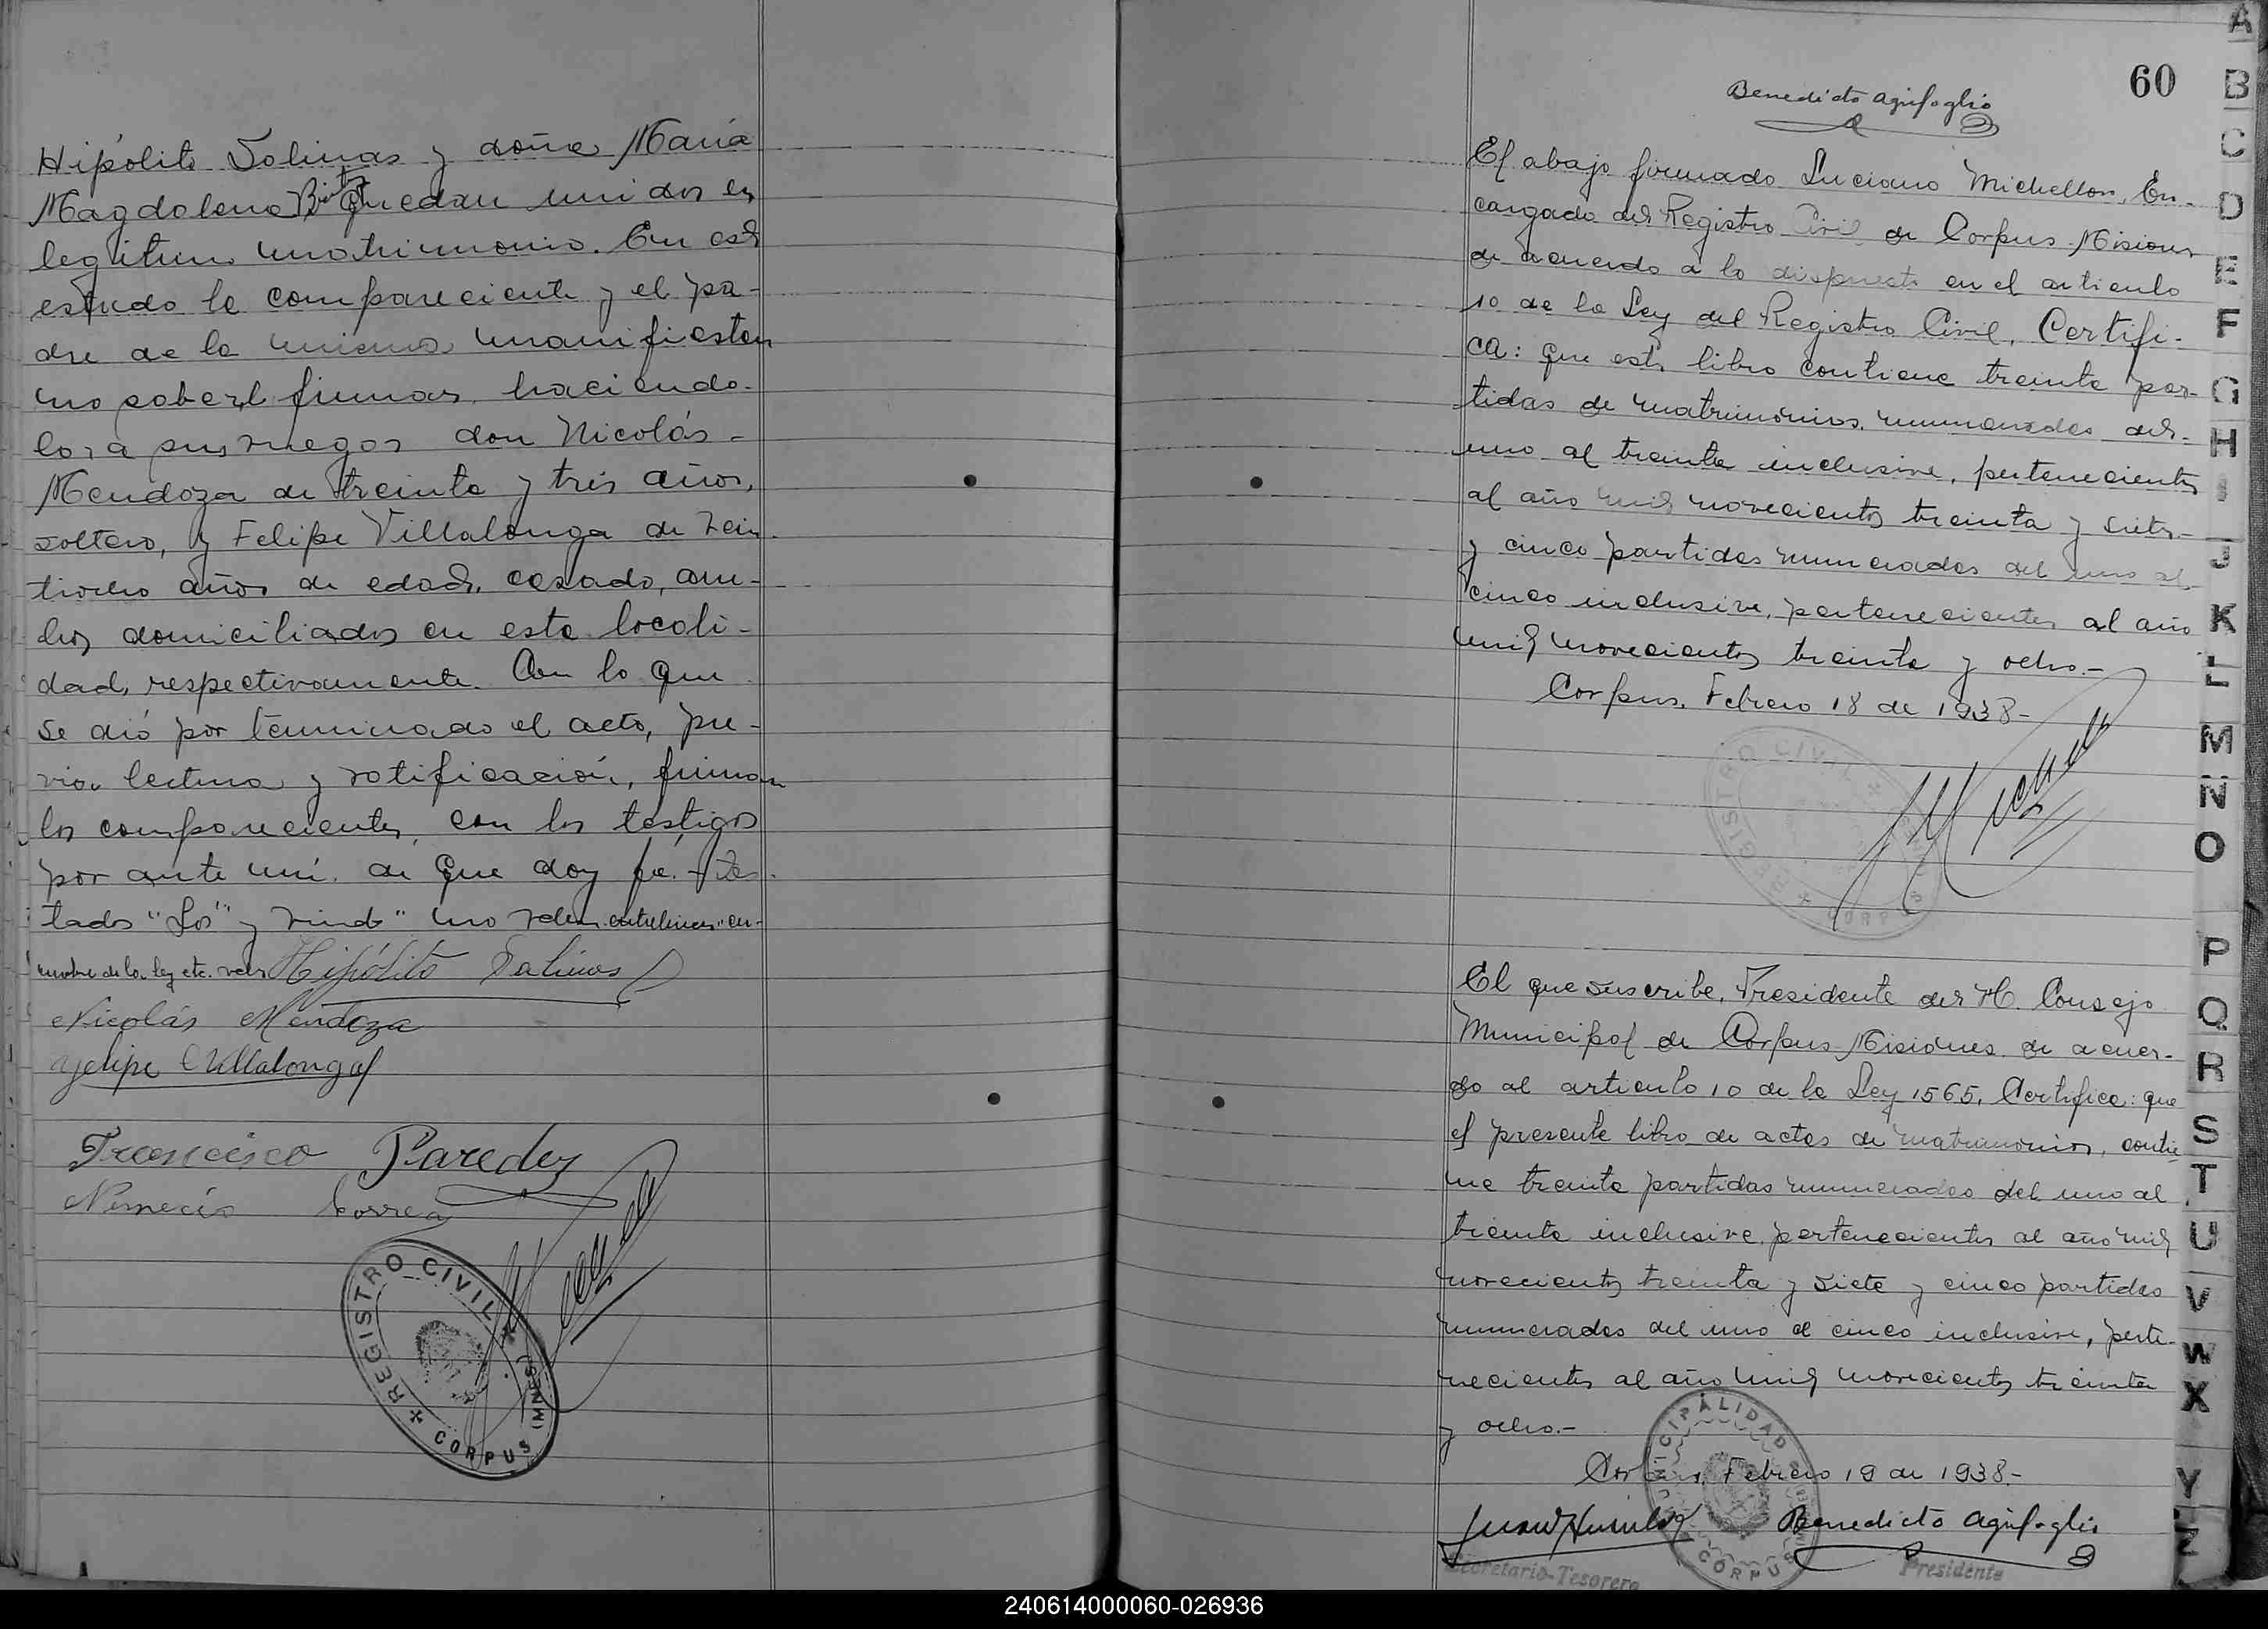 Hipólito Solinas y doña María
Magdalena quedan unidos en
legítimo matrimonio. En este
estado la compareciente y el pa-
dre de la misma manifiestan
no saber firmar haciendo-
lo a sus ruegos don Nicolás
Mendoza de treinta y tres años,
soltero, y Felipe Villalonga de vein-
tiocho años de edad, casado, am-
bos domiciliados en esta locali-
dad, respectivamente. Con lo que
se dió por terminado el acto, pre-
via lectura y ratificación, firman
los comparecientes, con los testigos
por ante mí, de que doy fé. - Tes-
tados "Los" y " no valen entrelineas "en
nombre de la ley etc. vale
Hipólito Salinas
Nicolás Mendoza
Felipe Villalonga
Francisco Paredes
Nemecio Correa
REGISTRO CIVIL
CORPUS (MNES)
60
Benedicto Agrifoglio
El abajo firmado Luciano Michellon, En-
cargado del Registro Civil de Corpus Misiones
de acuerdo a lo dispuesto en el articulo
10 de la Ley del Registro Civil, Certifi-
ca: que este libro contiene treinta par-
tidas de matrimonios numeradas del
uno al treinta inclusive, pertenecientes
al año mil novecientos treinta y siete
y cinco partidas numeradas del uno al
cinco inclusive, pertenecientes al año
mil novecientos treinta y ocho.-
Corpus, Febrero 18 de 1938-
REGISTRO CIVIL
CORPUS
El que suscribe, Presidente del H. Consejo
Municipal de Corpus Misiones de acuer-
do al articulo 10 de la Ley 1565, Certifica: que
el presente libro de actas de matrimonios, contie-
ne treinta partidas numeradas del uno al
treinta inclusive pertenecientes al año mil
novecientos treinta y siete y cinco partidas
numeradas del uno al cinco inclusive, perte-
necientes al año mil novecientos treinta
y ocho.-
Corpus, Febrero 19 de 1938.-
MUNICIPALIDAD
CORPUS
Benedicto Agrifoglio
Secretario-Tesorero
Presidente
A
B
C
D
E
F
G
H
I
J
K
L
M
N
O
P
Q
R
S
T
U
V
W
X
Y
Z
240614000060-026936